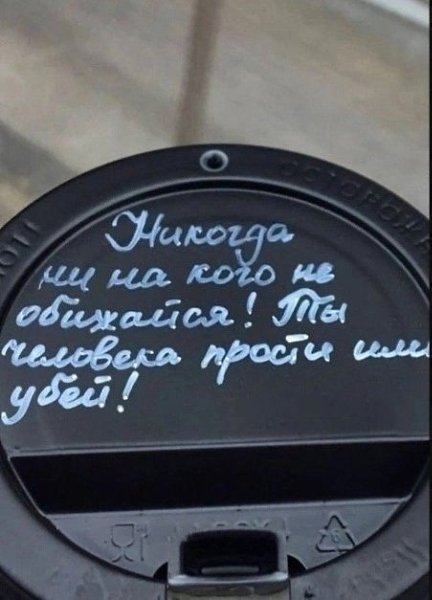 ОСТОРОЖ
Никогда
ни на кого не
обижайся! Ты
человека прости или
убей!